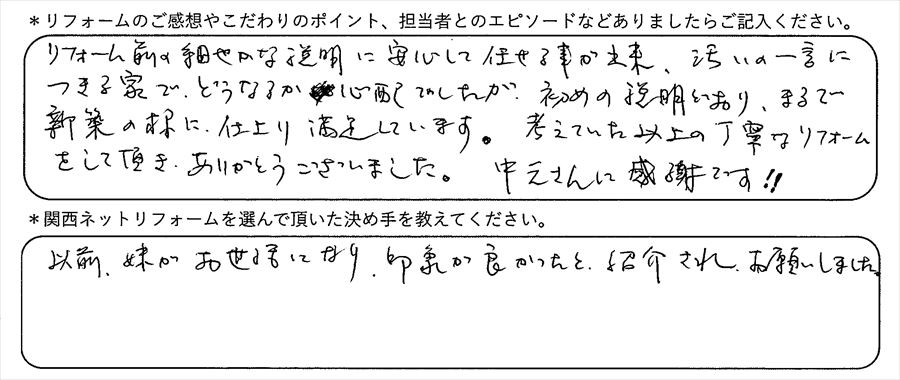 ＊リフォームのご感想やこだわりのポイント、担当者とのエピソードなどありましたらご記入ください。
リフォーム前の細やかな説明に安心して任せる事が出来、汚いの一言に
つきる家で、どうなるか心配でしたが、初めの説明どおり、まるで
新築の様に、仕上り満足しています。考えていた以上の丁寧なリフォーム
をして頂き、ありがとうございました。中元さんに感謝です!!
＊関西ネットリフォームを選んで頂いた決め手を教えてください。
以前、妹がお世話になり、印象が良かったと、紹介され、お願いしました。